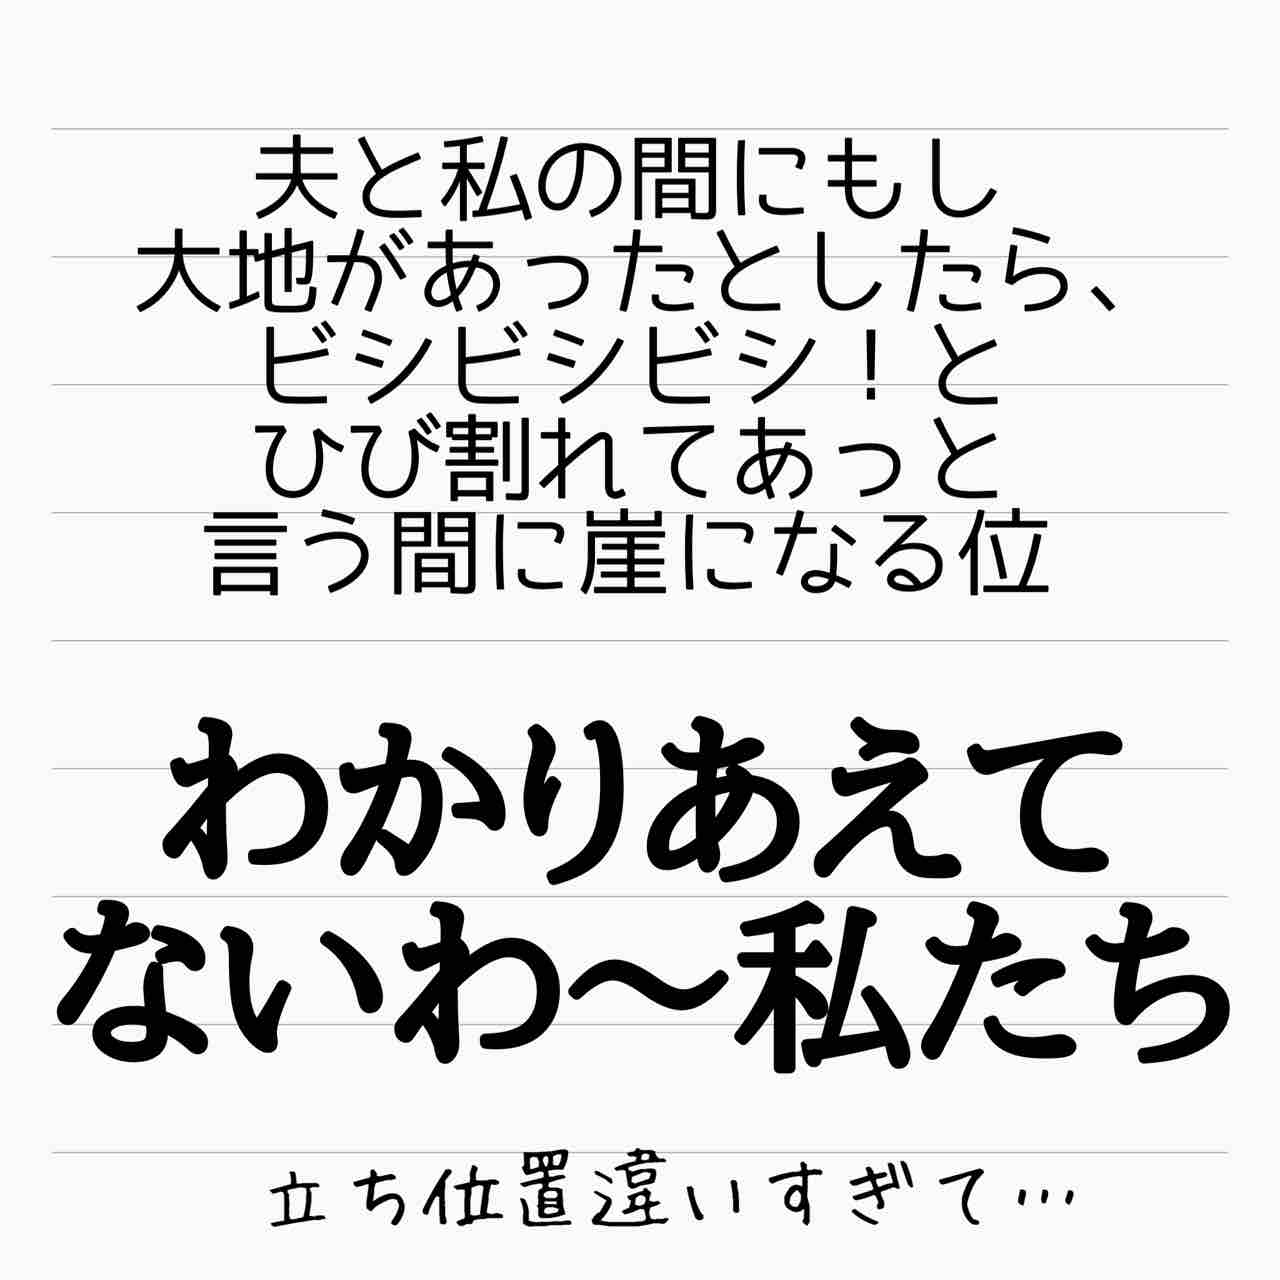 夫と私の間にもし
大地があったとしたら、
ビシビシビシ！と
ひび割れてあっと
言う間に崖になる位
わかりあえて
ないわ〜私たち
立ち位置違いすぎて…